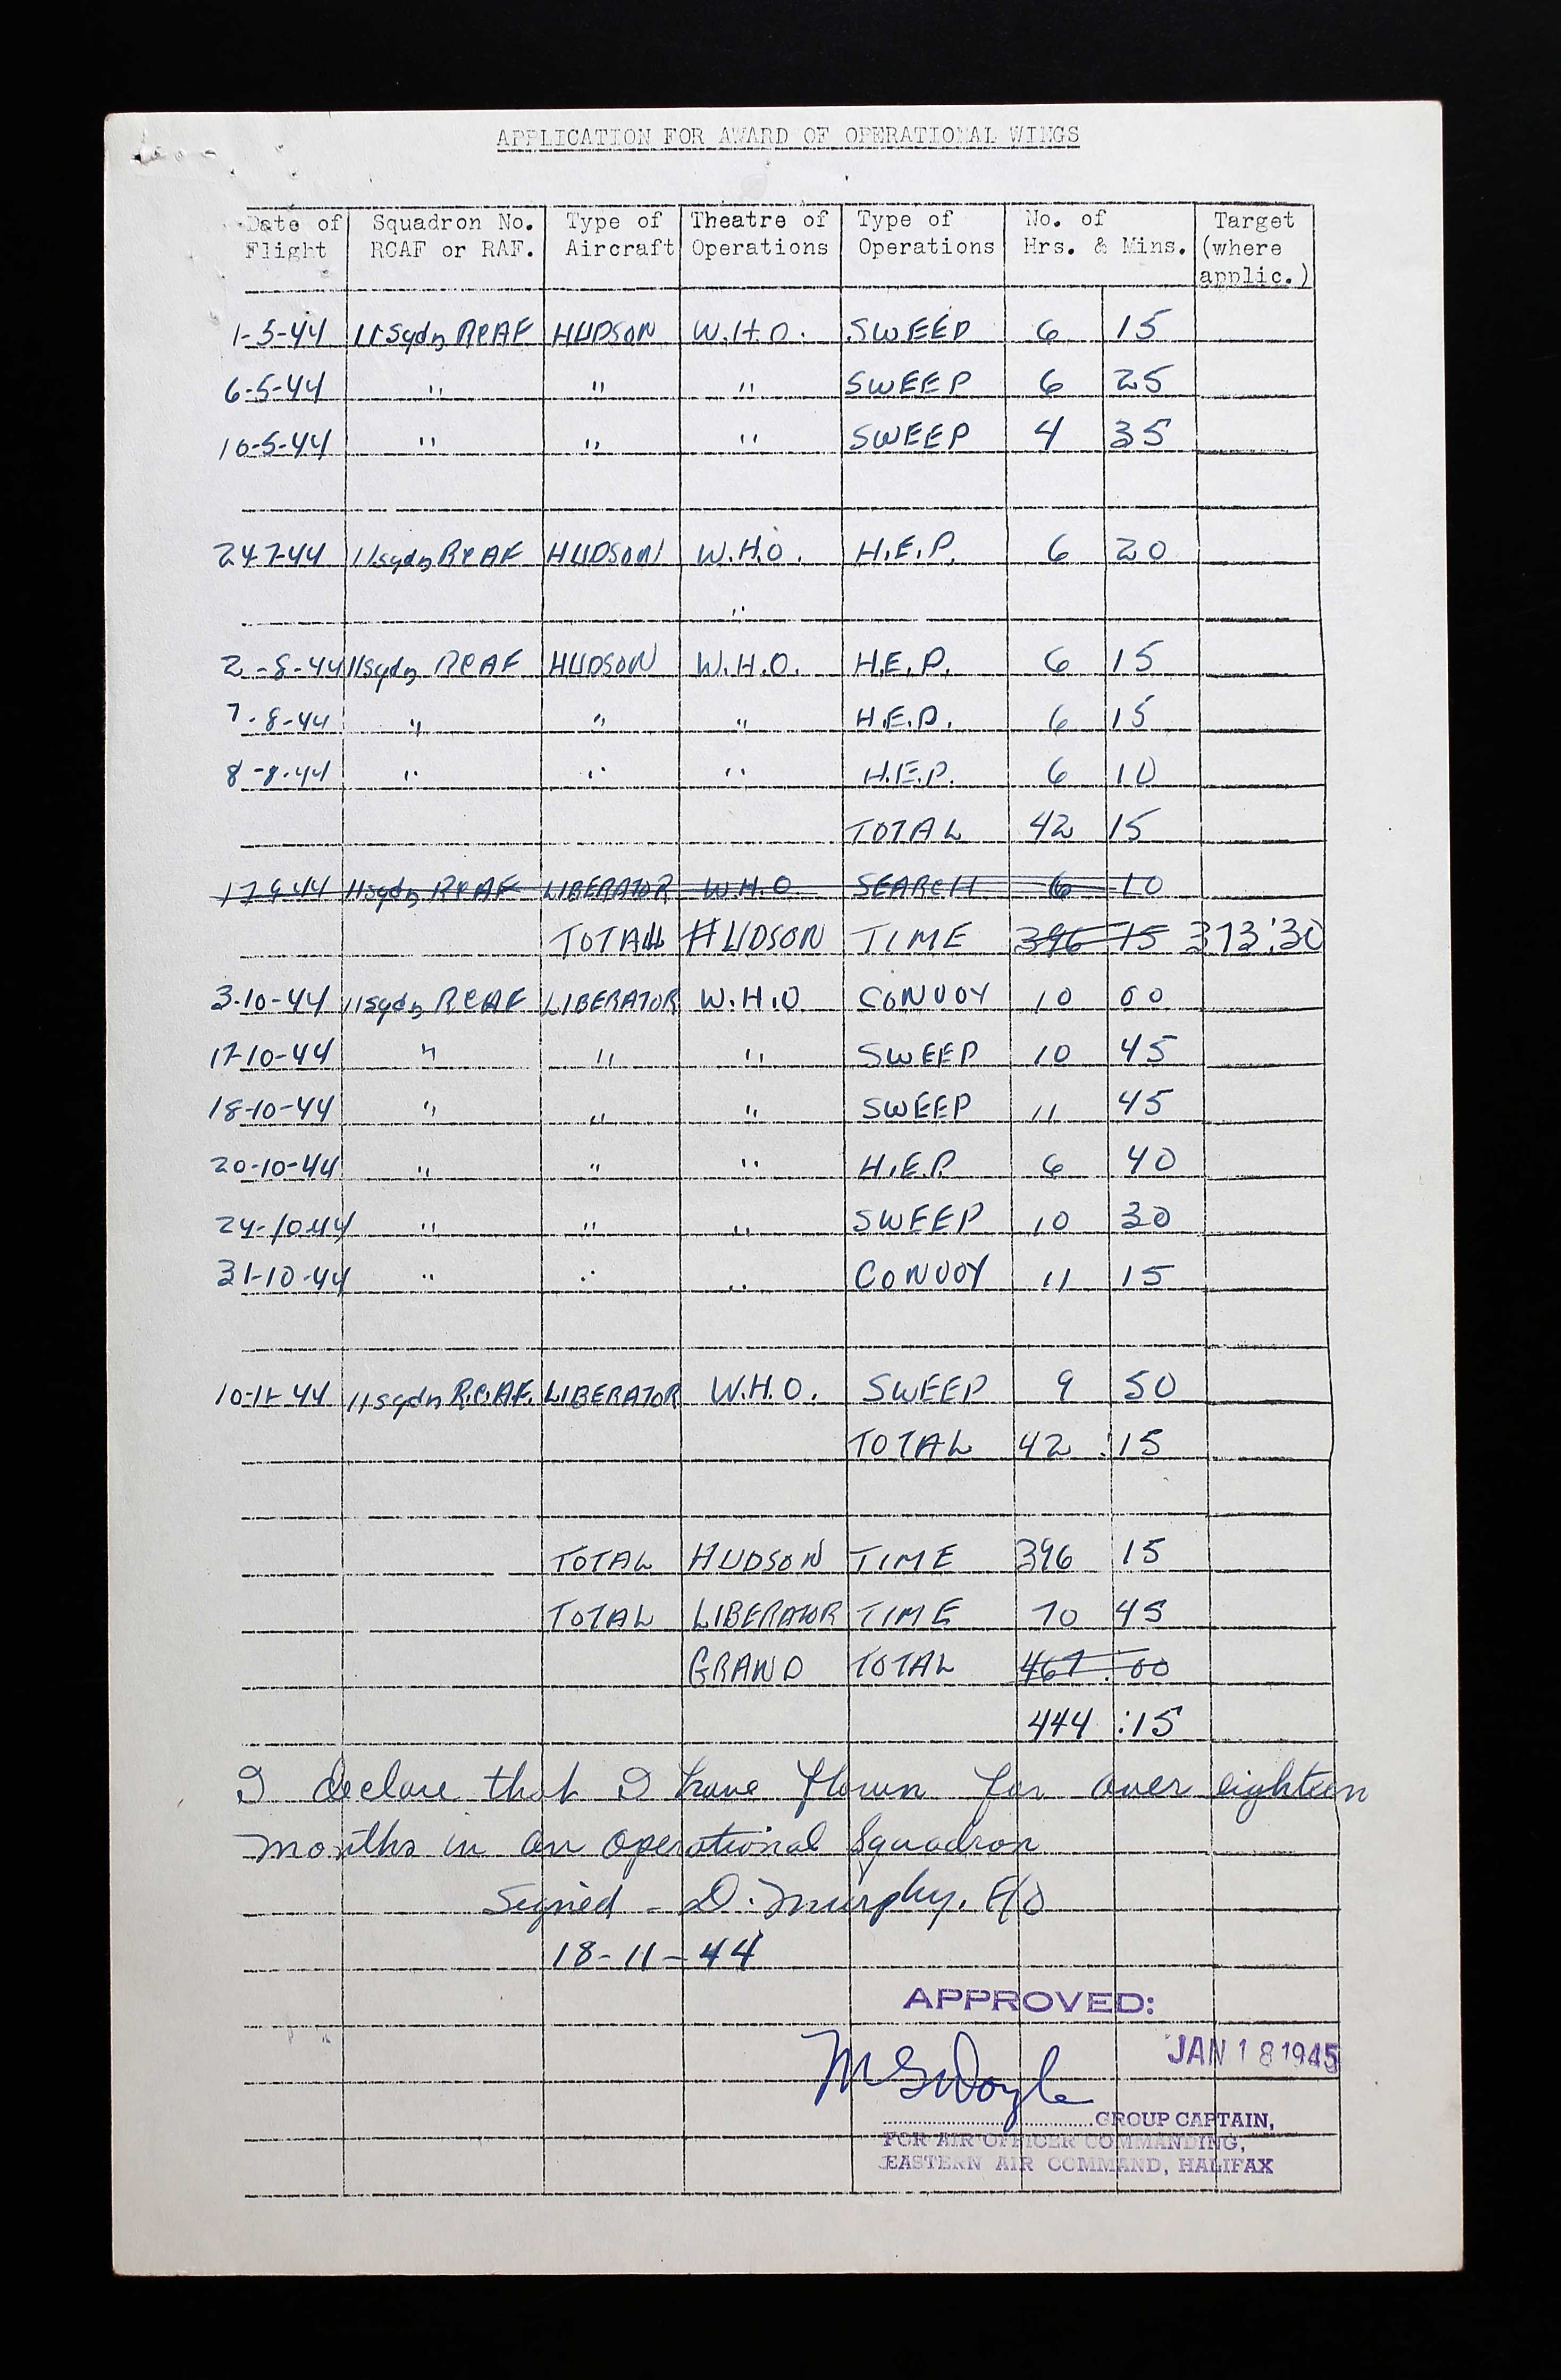 APPLICATION FOR AWARD OF OPERATIONAL WINGS
Date of Flight Squadron No. RCAF or RAF. Type of Aircraft Theatre of Operations Type of Operations No. of Hrs. & Mins. Target (where applic.)
1-5-44 11 Sqdn RCAF HUDSON W.H.O. SWEEP 6 15
6-5-44 " " " SWEEP 6 25
10-5-44 " " " SWEEP 4 35
24-7-44 11 sqdn RCAF HUDSON W.H.O. H.E.P. 6 20
"
2-8-44 11 Sqdn RCAF HUDSON W.H.O. H.E.P. 6 15
7-8-44 " " " H.E.P. 6 15
8-8-44 " " " H.E.P. 6 10
TOTAL 42 15
17-9-44 11 sqdn RCAF LIBERATOR W.H.O. SEARCH 6 10
TOTAL HUDSON TIME 396 15 373:30
3-10-44 11 sqdn RCAF LIBERATOR W.H.O CONVOY 10 00
17-10-44 " " " SWEEP 10 45
18-10-44 " " " SWEEP 11 45
20-10-44 " " " H.E.P. 6 40
24-10-44 " " " SWEEP 10 30
31-10-44 " " " CONVOY 11 15
10-11-44 11 sqdn R.C.AF. LIBERATOR W.H.O. SWEEP 9 50
TOTAL 42:15
TOTAL HUDSON TIME 396 15
TOTAL LIBERATOR TIME 70 45
GRAND TOTAL 467:00
444:15
I declare that I have flown for over eighteen
months in an operational Squadron
Signed - D. Murphy. F/O
18-11-44
APPROVED:
JAN 18 1945
GROUP CAPTAIN,
FOR AIR OFFICER COMMANDING,
EASTERN AIR COMMAND, HALIFAX